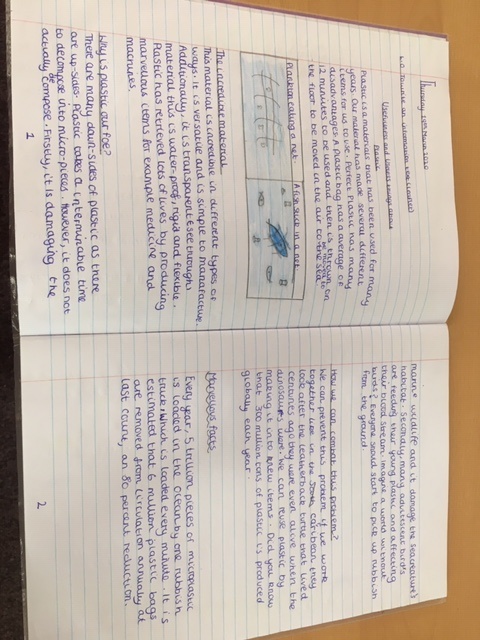 Thursday 10th March 2020
L.O. To write an information text (climate)
Usefulness and Dangers around plastic
Plastic
Plastic is a materials that has been used for many
years. Our material has made several different
items for us to use. Perfect Plastic has many
disadvantages. A plastic bag has a average of
12 minutes to be used and then is thrown on
the floor to be moved in the air to the sea
Plankton eating a net.
A fish stuck in a net
The incredible material
This material is incredible in different types of
ways: it is versatile and is simple to manafacture.
Additionally, it is transparent (see through)
material thus is water-proof, rigid and flexible.
Plastic has retrieved lots of lives by producing
marvellous items for example medicine and
machines.
Why is plastic our foe?
There are many down-sides of plastic as there
are up-sides. Plastic takes a interminable time
to decompose into micro-pieces. However, it does not
actually compose. Firstly, it is damaging the
1
marine wildlife and it damage the seacreature's
habitat. Secondly, many adolescent birds
are feeding their young plastic and affecting
their blood stream. Imagine a world without
birds? Everyone should start to pick up rubbish
from the ground
How we can combat this problem?
We can prevent this problem if we work
together. Even in the caribbean they
look after the leatherback turtle that lived
centuries ago they were even alive when the
dinosaurs were. We can reuse plastic by
making it into new items. Did you know
that 300 million tons of plastic is produced
globally each year.
Marvellous facts
Every year, 5 trillion pieces of microplastic
is loaded in the ocean by one rubbish
truck, which is loaded every minute. It is
estimated that 6 million plastic bags
are removed from circulation annually at
last count, an 80 percent reduction.
2